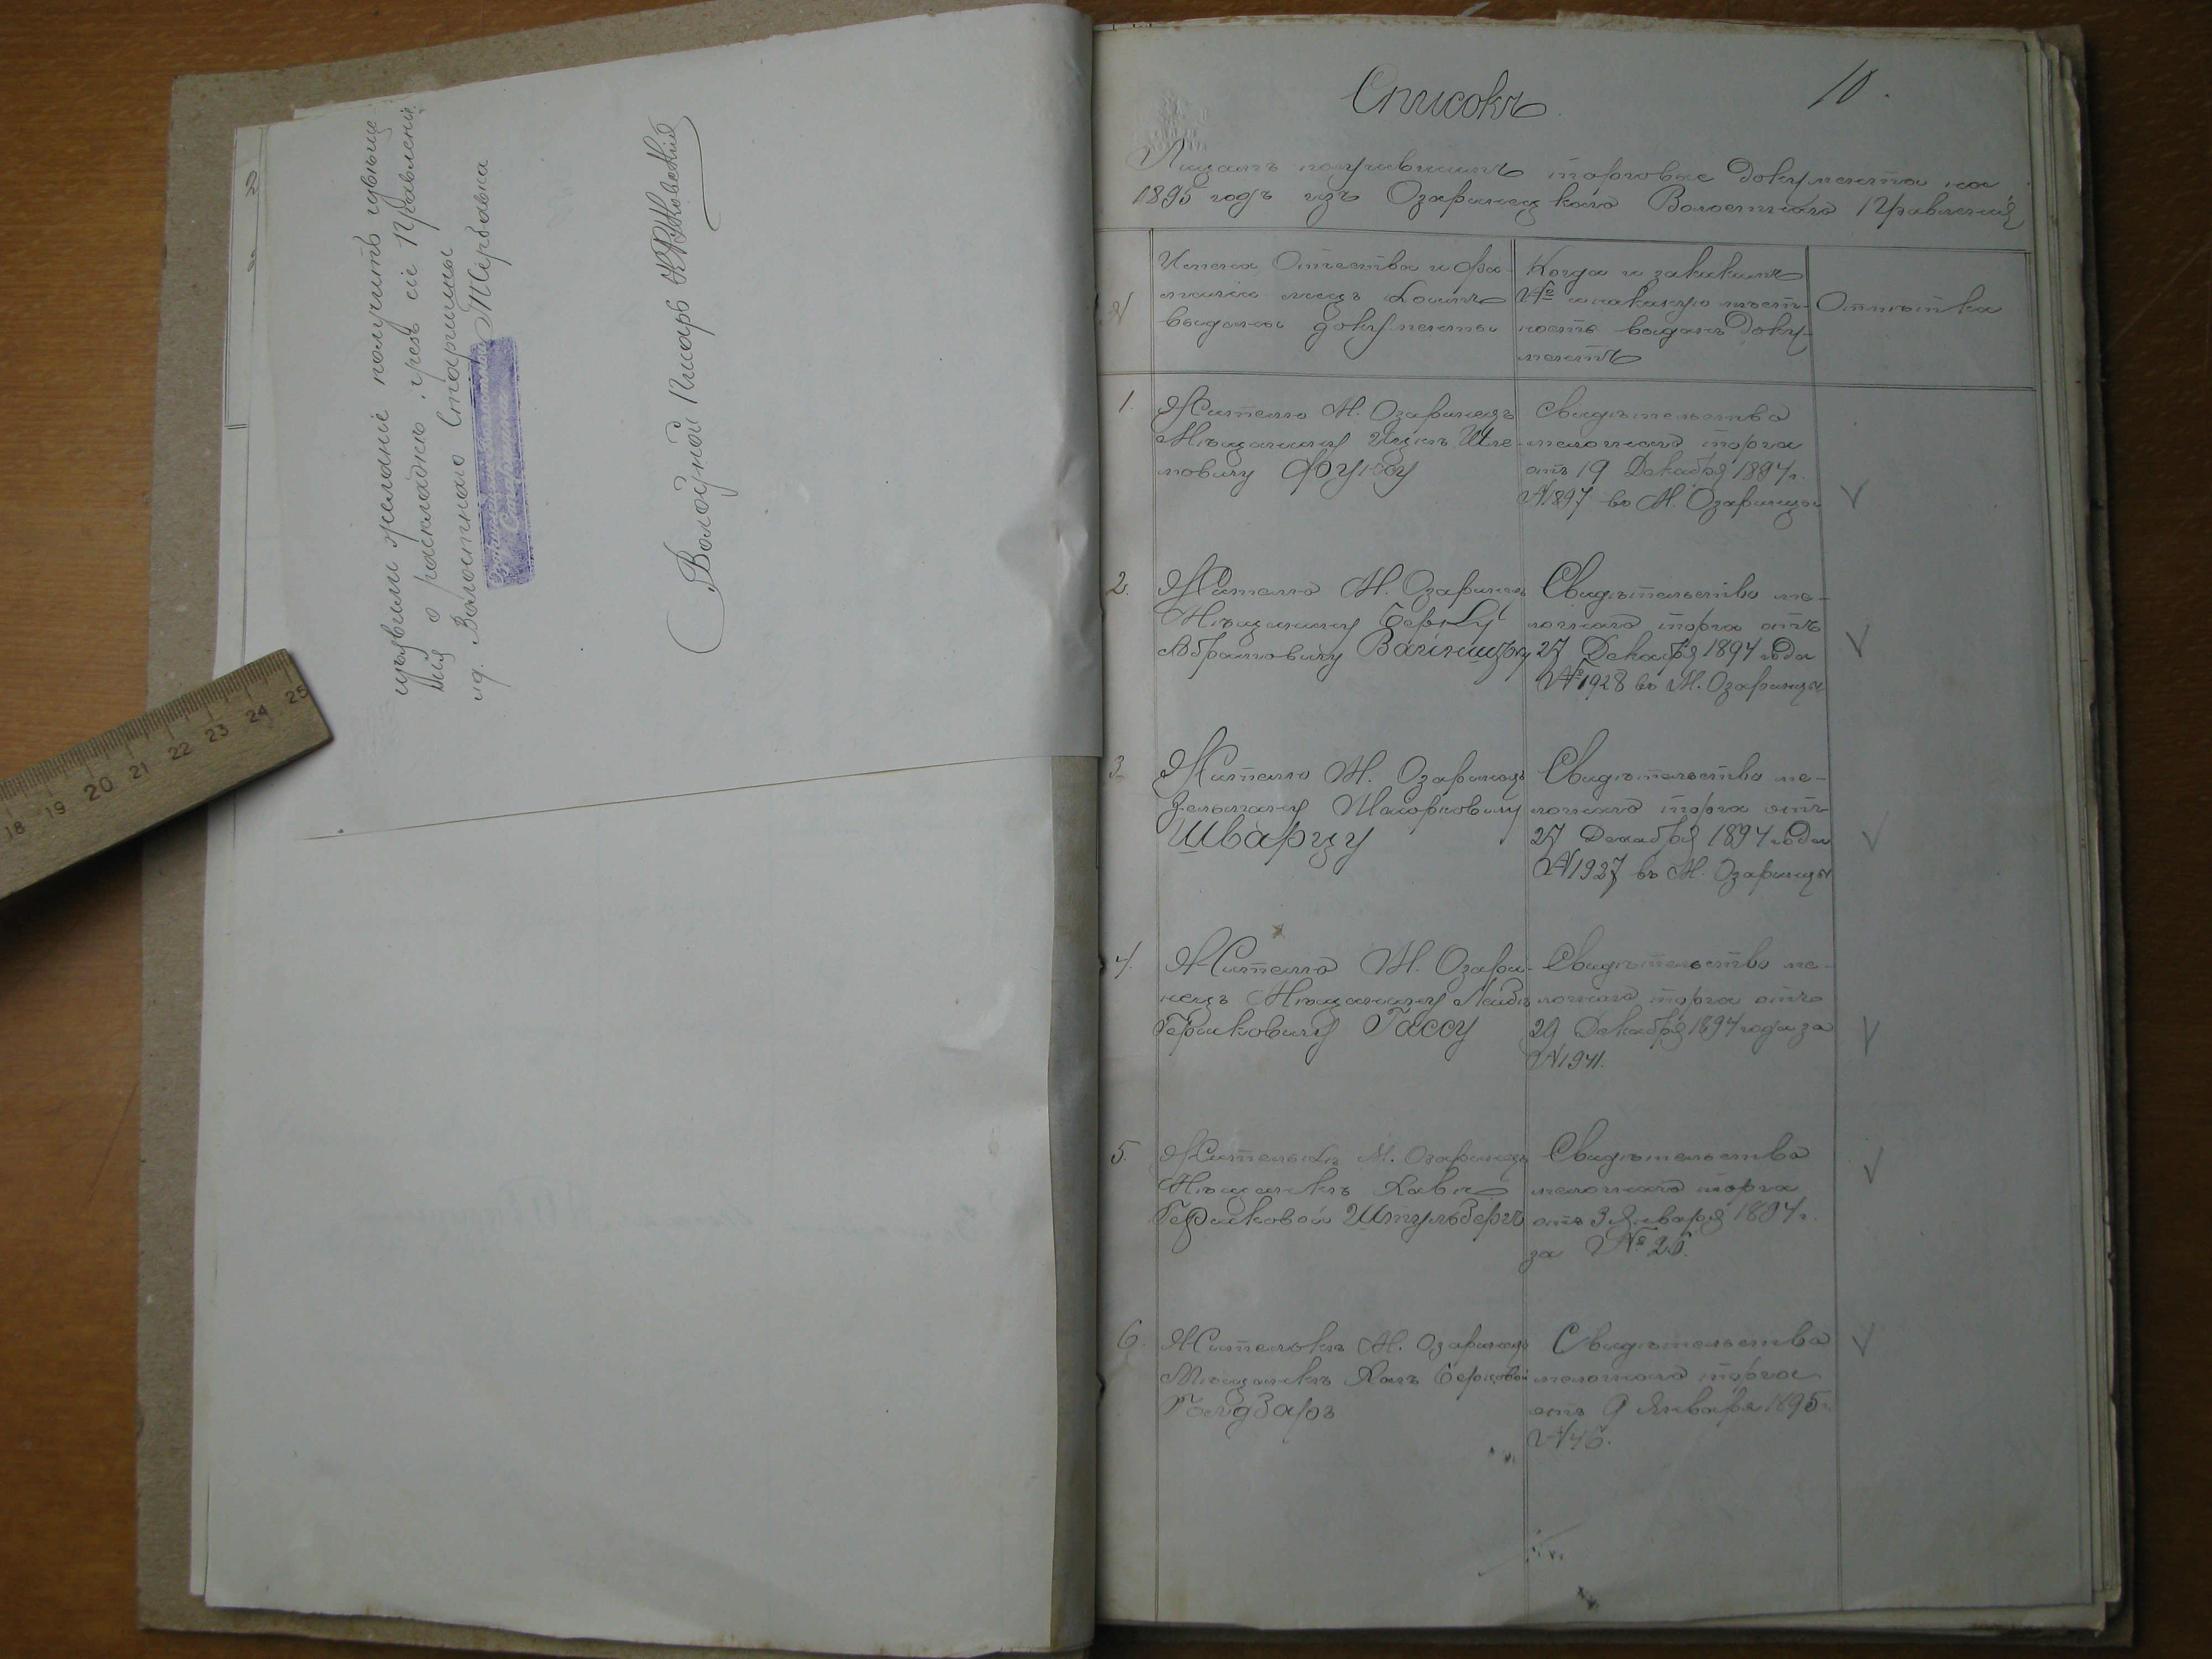 изъявили желаніе получить
о раскладкѣ, чрезъ сіе Правленіе.
Волостнаго Старшины
Щербавка
Волостной Писарь
10.
Списокъ
Лицамъ получившимъ торговые документы на
1895 годъ изъ Озаринецкаго Волостнаго Правленія
№
Имена Отчества и фа-
миліи лицъ коимъ
выданы документы
Когда и закакимъ
№ и накакую мѣст-
ность выданъ доку-
ментъ
Отмѣтка
1.
Жителю М. Озаринецъ
Мѣщанину Ицку Шле-
мовичу Фуксу
Свидѣтельства
мелочнаго торга
отъ 19 Декабря 1894 г.
№ 1897 въ М. Озаринцы
2.
Жителю М. Озаринецъ
Мѣщанину Берку
Абрамовичу
Свидѣтельство ме-
лочнаго торга отъ
27 Декабря 1894 года
№ 1928 въ М. Озаринцы
3.
Жителю М. Озаринецъ
Зельману
Шварцу
Свидѣтельство ме-
лочнаго торга отъ
27 Декабря 1894 года
№ 1927 въ М. Озаринцы
4.
Жителю М. Озари-
нецъ Мѣщанину Лейбѣ
Гершковичу Гассу
Свидѣтельство ме-
лочнаго торга отъ
29 Декабря 1894 года за
№ 1941.
5.
Жителькѣ М. Озаринецъ
Мѣщанкѣ
Гершковой Штульбергъ
Свидѣтельства
мелочнаго торга
отъ 3 Января 1894 г.
за № 26.
6.
Жителькѣ М. Озаринецъ
Мѣщанкѣ Берковой
Свидѣтельства
мелочнаго торга
отъ 9 Января 1895 г.
№ 46.
18 19 20 21 22 23 24 25